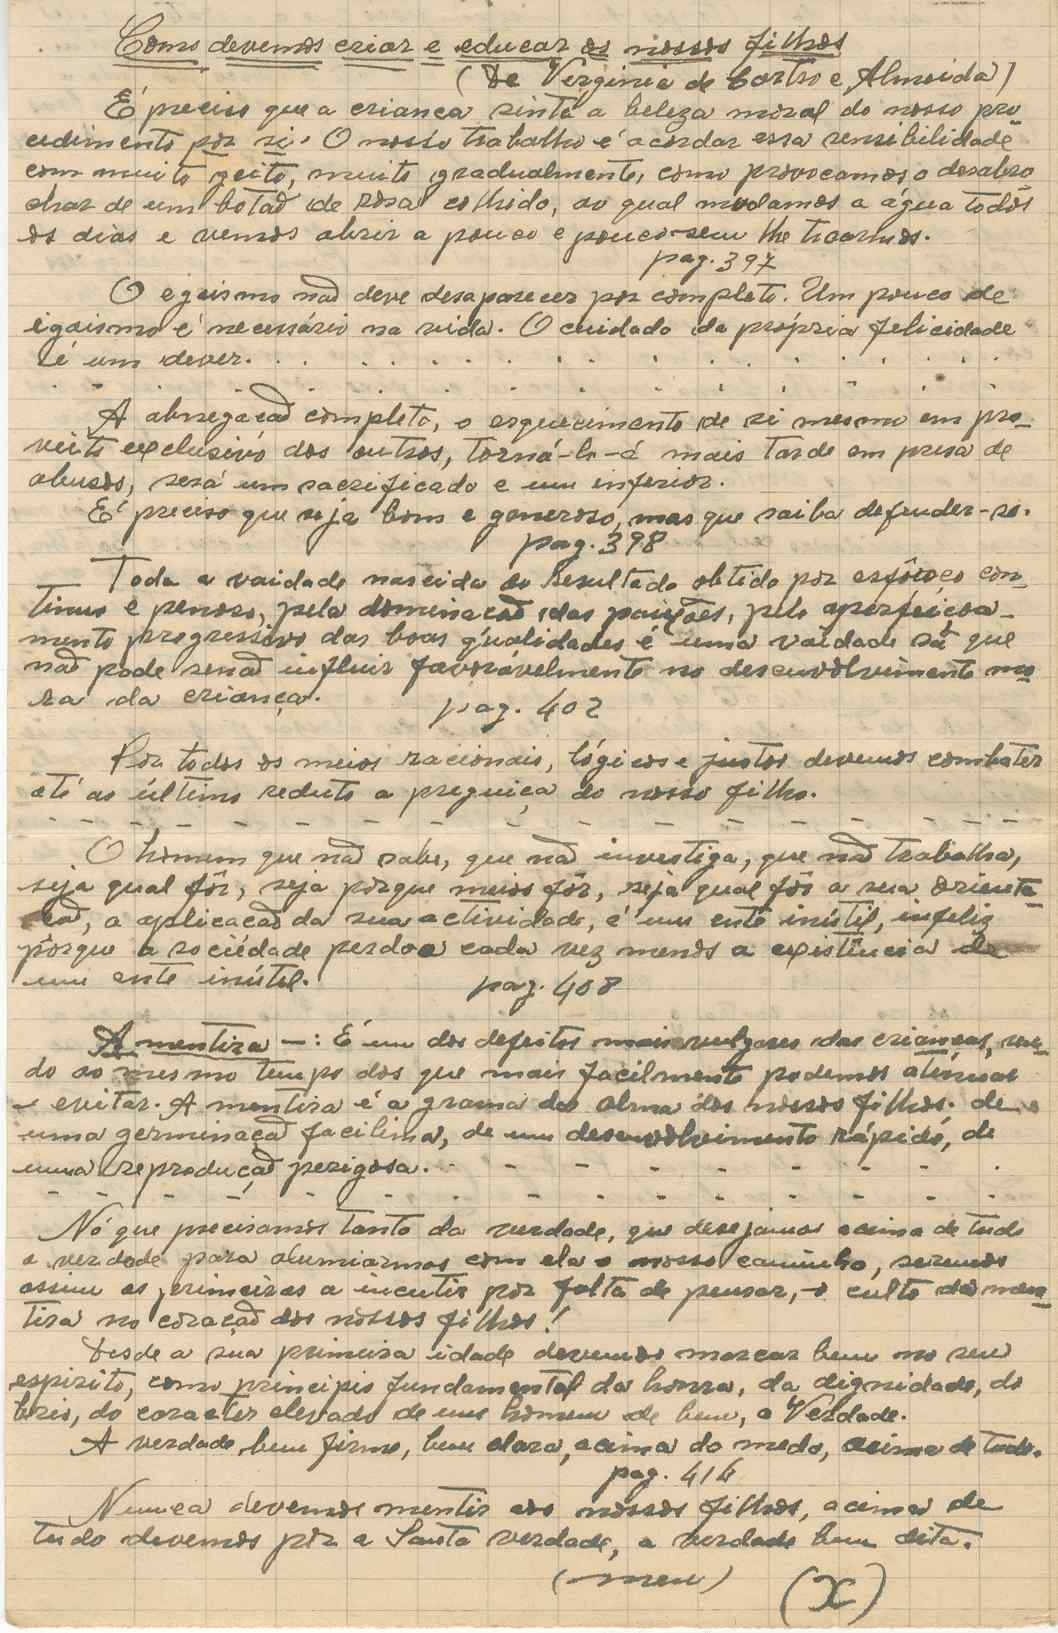 Como devemos criar e educar os nossos filhos
(De Vergínia de Castro e Almeida)
É preciso que a criança sinta a beleza moral do nosso pro-
cedimento por si. O nosso trabalho é acordar essa sensibilidade
com muito geito, muito gradualmente, como provocamos o desabro
char de um botão de rosa colhido, ao qual mudamos a água todos
os dias e vemos abrir a pouco e pouco sem lhe tocarmos.
pag. 397
O egoismo não deve desaparecer por completo. Um pouco de
egoismo é necessário na vida. O cuidado da própria felicidade
é um dever. . . . . . . . . . . . . .
A abnegação completa, o esquecimento de si mesmo em pro-
veito exclusivo dos outros, torná-lo-á mais tarde em presa de
abusos, será um sacrificado e um inferior.
É preciso que seja bom e generoso, mas que saiba defender-se.
pag. 398
Toda a vaidade nascida do resultado obtido por esfôrço con-
tinuo e penoso, pela dominação das paixões, pelo aperfeiçoa-
mento progressivo das boas qualidades é uma vaidade sã que
não pode senão influir favorávelmente no desenvolvimento mo
ra da criança. pag. 402
Por todos os meios racionais, lógicos e justos devemos combater
até ao último reduto a preguiça do nosso filho.
- - - - - - - - - - - - - - -
O homem que não sabe, que não investiga, que não trabalha,
seja qual fôr, seja porque meios fôr, seja qual fôr a sua orienta
ção, a aplicação da sua actividade, é um ente inútil, infeliz
porque a sociedade perdoa cada vez menos a existência de
um ente inútil. pag. 408
A mentira —: É um dos defeitos mais vulgares das crianças, sen-
do ao mesmo tempo dos que mais facilmente podemos atenuar
e evitar. A mentira é a grama da alma dos nossos filhos. de
uma germinação facilima, de um desenvolvimento rápido, de
uma reprodução perigosa. - - - - - - -
- - - - - - - - - - - - - - -
Nó que precisamos tanto da verdade, que desejamos acima de tudo
a verdade para alumiarmos com ela o nosso caminho, seremos
assim os primeiros a incutir por falta de pensar, o culto da men-
tira no coração dos nossos filhos!
Desde a sua primeira idade devemos marcar bem no seu
espirito, como principio fundamental da honra, da dignidade, do
brio, do caracter elevado de um homem de bem, a Verdade.
A verdade bem firme, bem clara, acima do medo, acima de tudo.
pag. 414
Nunca devemos mentir aos nossos filhos, acima de
tudo devemos pôr a Santa verdade, a verdade bem dita.
(meu) (X)